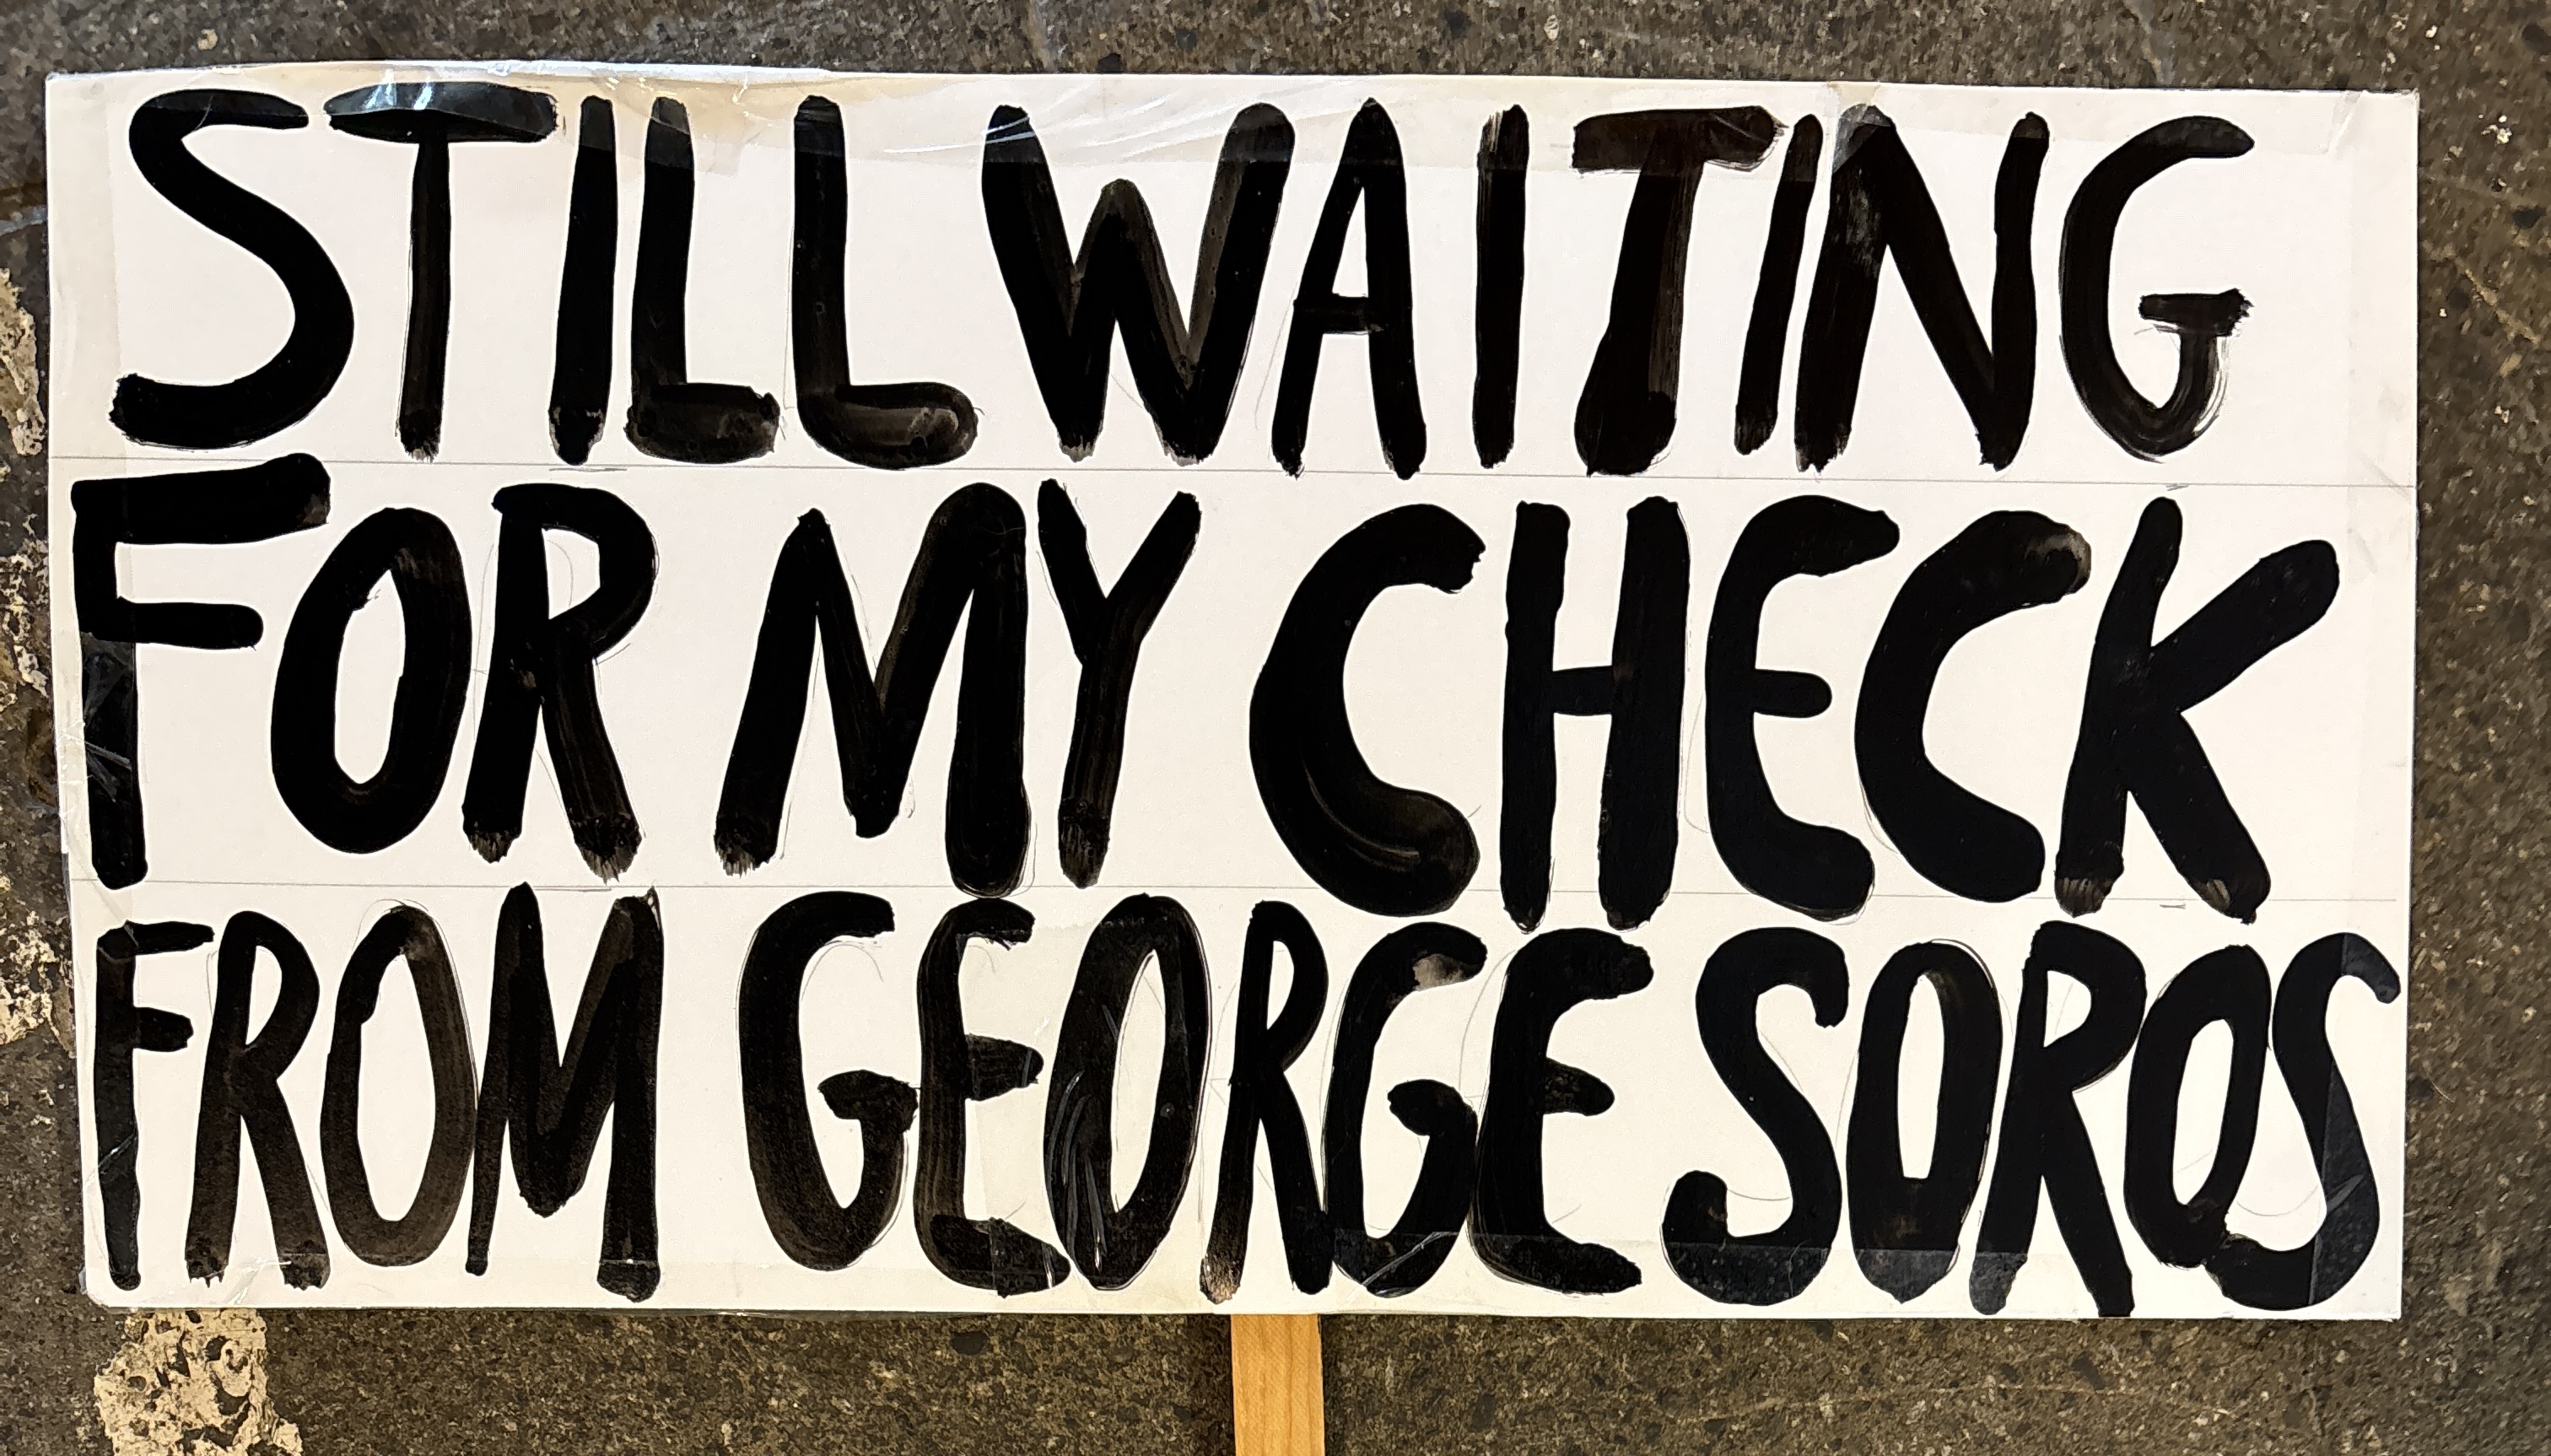 STILL WAITING
FOR MY CHECK
FROM GEORGE SOROS